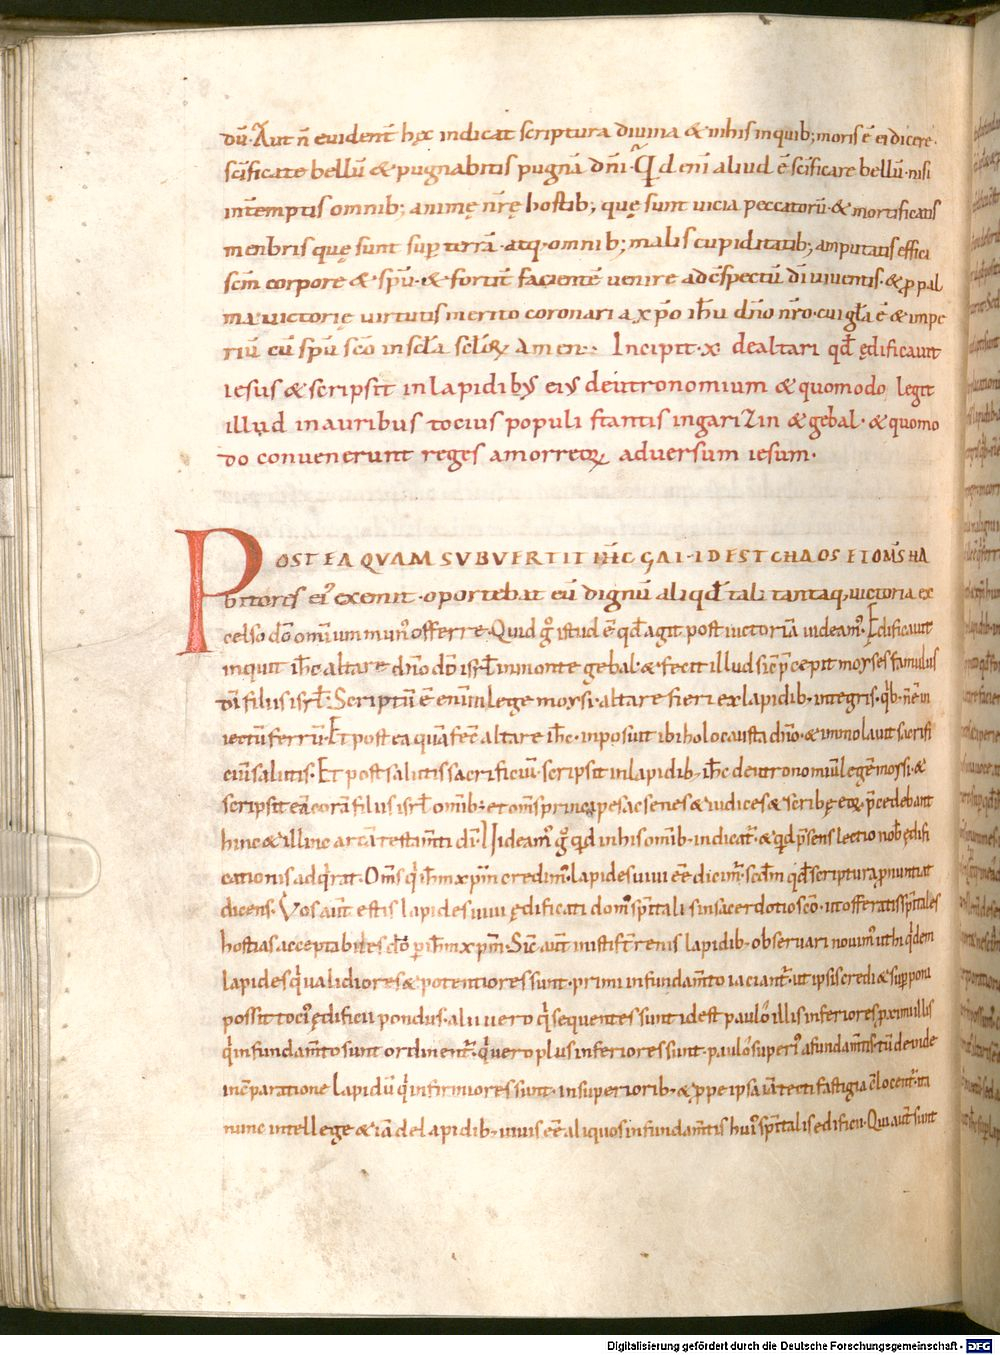 dū· Aut ñ evident̄ hęc indicat scriptura divina & in his in quib; moris ē ei dicere·
scīficate bellū & pugnabitis pugnā dñi· Qd enī aliud ē scīficare bellū· nisi
intēmptis omnib; animę nrę hostib; quę sunt vicia peccatorū· & mortificatis
menbris quę sunt sup terrā· atq; omnib; malis cupiditatib; amputatis effici
scm̄ corpore & spū· & fortit̄ facientē venire ad cspectū dī viventis· & p pal
ma victorię virtutis merito coronari a xpo ihu dño nro· cui gla ē & impe
riū cū spū sco in scla sclorꝝ Amen: Incipit· x· de altari qđ ędificavit
iesus & scripsit in lapidibꝯ eiꝯ deutronomium & quomodo legit
illud in auribus tocius populi stantis in garizin & gebal· & quomo
do convenerunt reges amorreorꝝ adversum iesum·
POSTEAQUAM SUBVERTIT IHC GAI· ID EST CHAOS ET OMS HA
bitores ei' exemit· oportebat eū dignū aliqđ tali tantaq; victoria ex
celso dō omnium mun' offerre· Quid g° istud ē qđ agit post victoriā videam'· Edificavit
inquit ihc altare dño dō isrł in monte gebal· & fecit illud sic pcepit moyses famulus
dī filiis isrł· Scriptū ē enī in lege moysi· altare fieri ex lapidib; integris· qib; n ē in
iectū ferrū· Et postea quā fec̄ altare ihc· inposuit ibi holocausta dño· & immolavit sacrifi
ciū salutis· Et post salutis sacrificiū· scripsit in lapidib; ihc deutronomiū legē moysi· &
scripsit eā corā filiis isrł omib; et oms principes ac senes & iudices & scribę eorꝝ pcedebant
hinc & illinc arcā testamti dī· Videam' g° qd in his omib; indicat̄· & qd psens lectio nob ędifi
cationis adqirat· Oms qi ihm xpm credim'· lapides vivi ee dicim'· scdm qđ scriptura pnuntiat
dicens· Vos aut̄ estis lapides vivi ędificati dom' spitalis in sacerdotio sco· ut offeratis spitales
hostias acceptabiles do p ihm xpm· Sic aut̄ in istis terrenis lapidib; observari novim' ut hi qidem
lapides qi validiores & potentiores sunt· primi in fundamto iaciant̄· ut ipsis credi & supponi
possit toci' ędificii pondus· alii vero qi sequentes sunt id est paulo illis inferiores pximi illis
qi in fundamto sunt ordinent̄· qi vero plus inferiores sunt· paulo superi' a fundamtis· tū deinde
in cparatione lapidū qi infirmiores sunt· in superiorib; & ppe ipsa iā tecti fastigia clocent̄· ita
nunc intellege & iā de lapidib; vivis ee aliquos in fundamtis hui' spitalis edificii· Qui aut̄ sunt
Digitalisierung gefördert durch die Deutsche Forschungsgemeinschaft - DFG